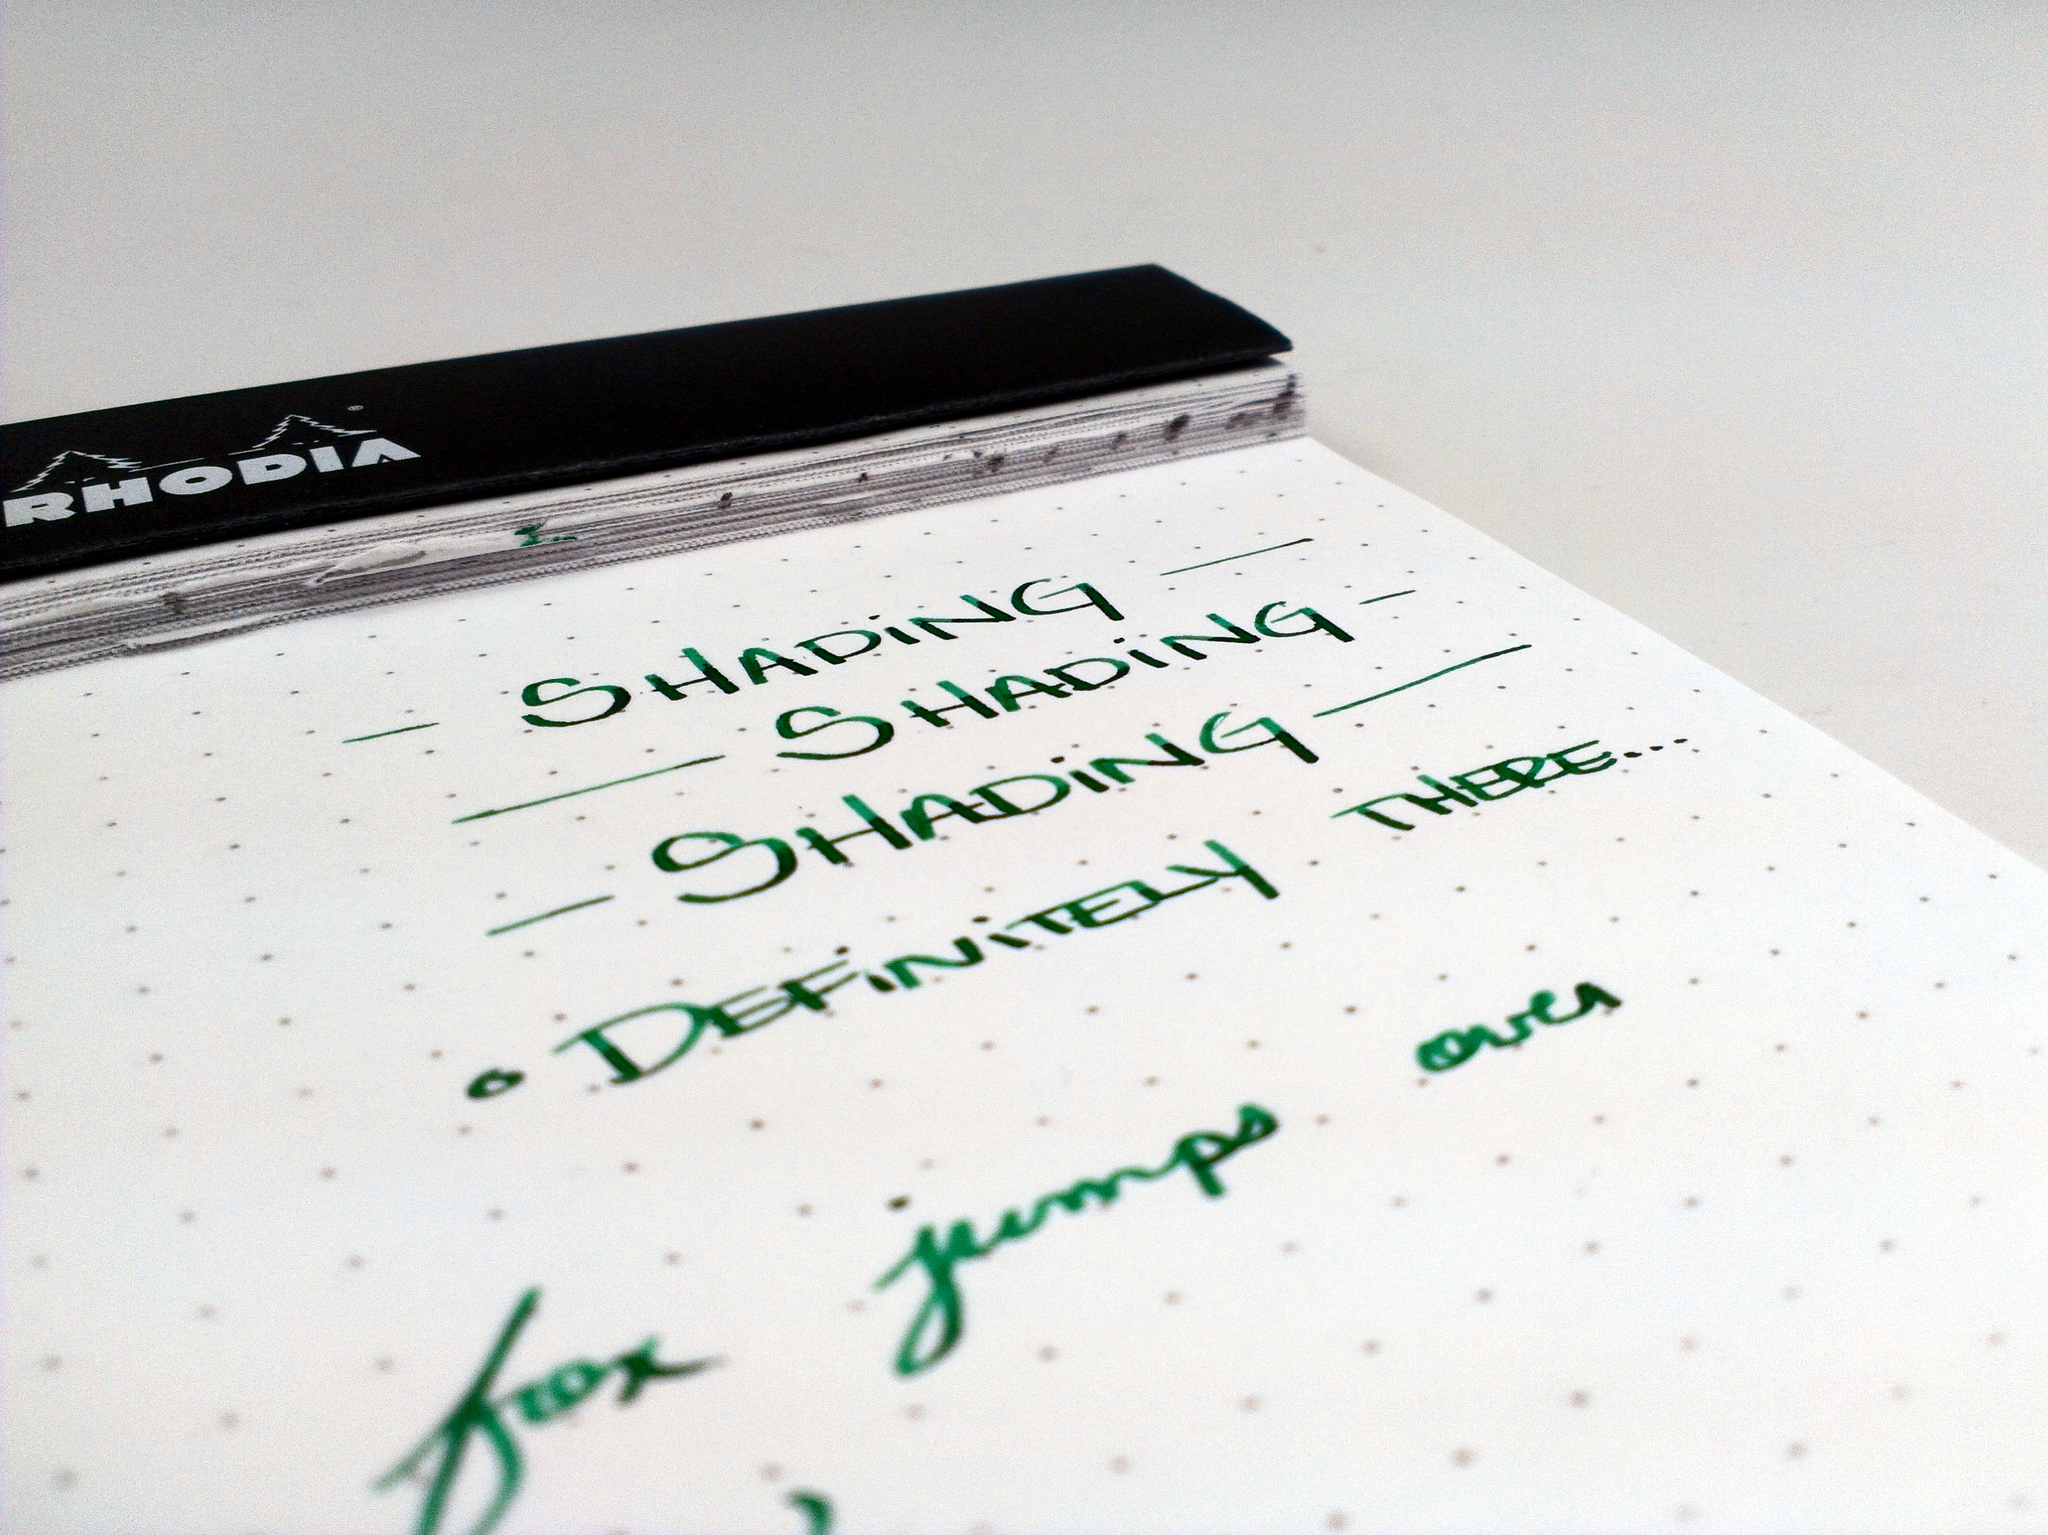 RHODIA
— SHADiNG —
— SHADiNG —
— SHADiNG —
• DEFiNiTELY THERE...
fox jumps over